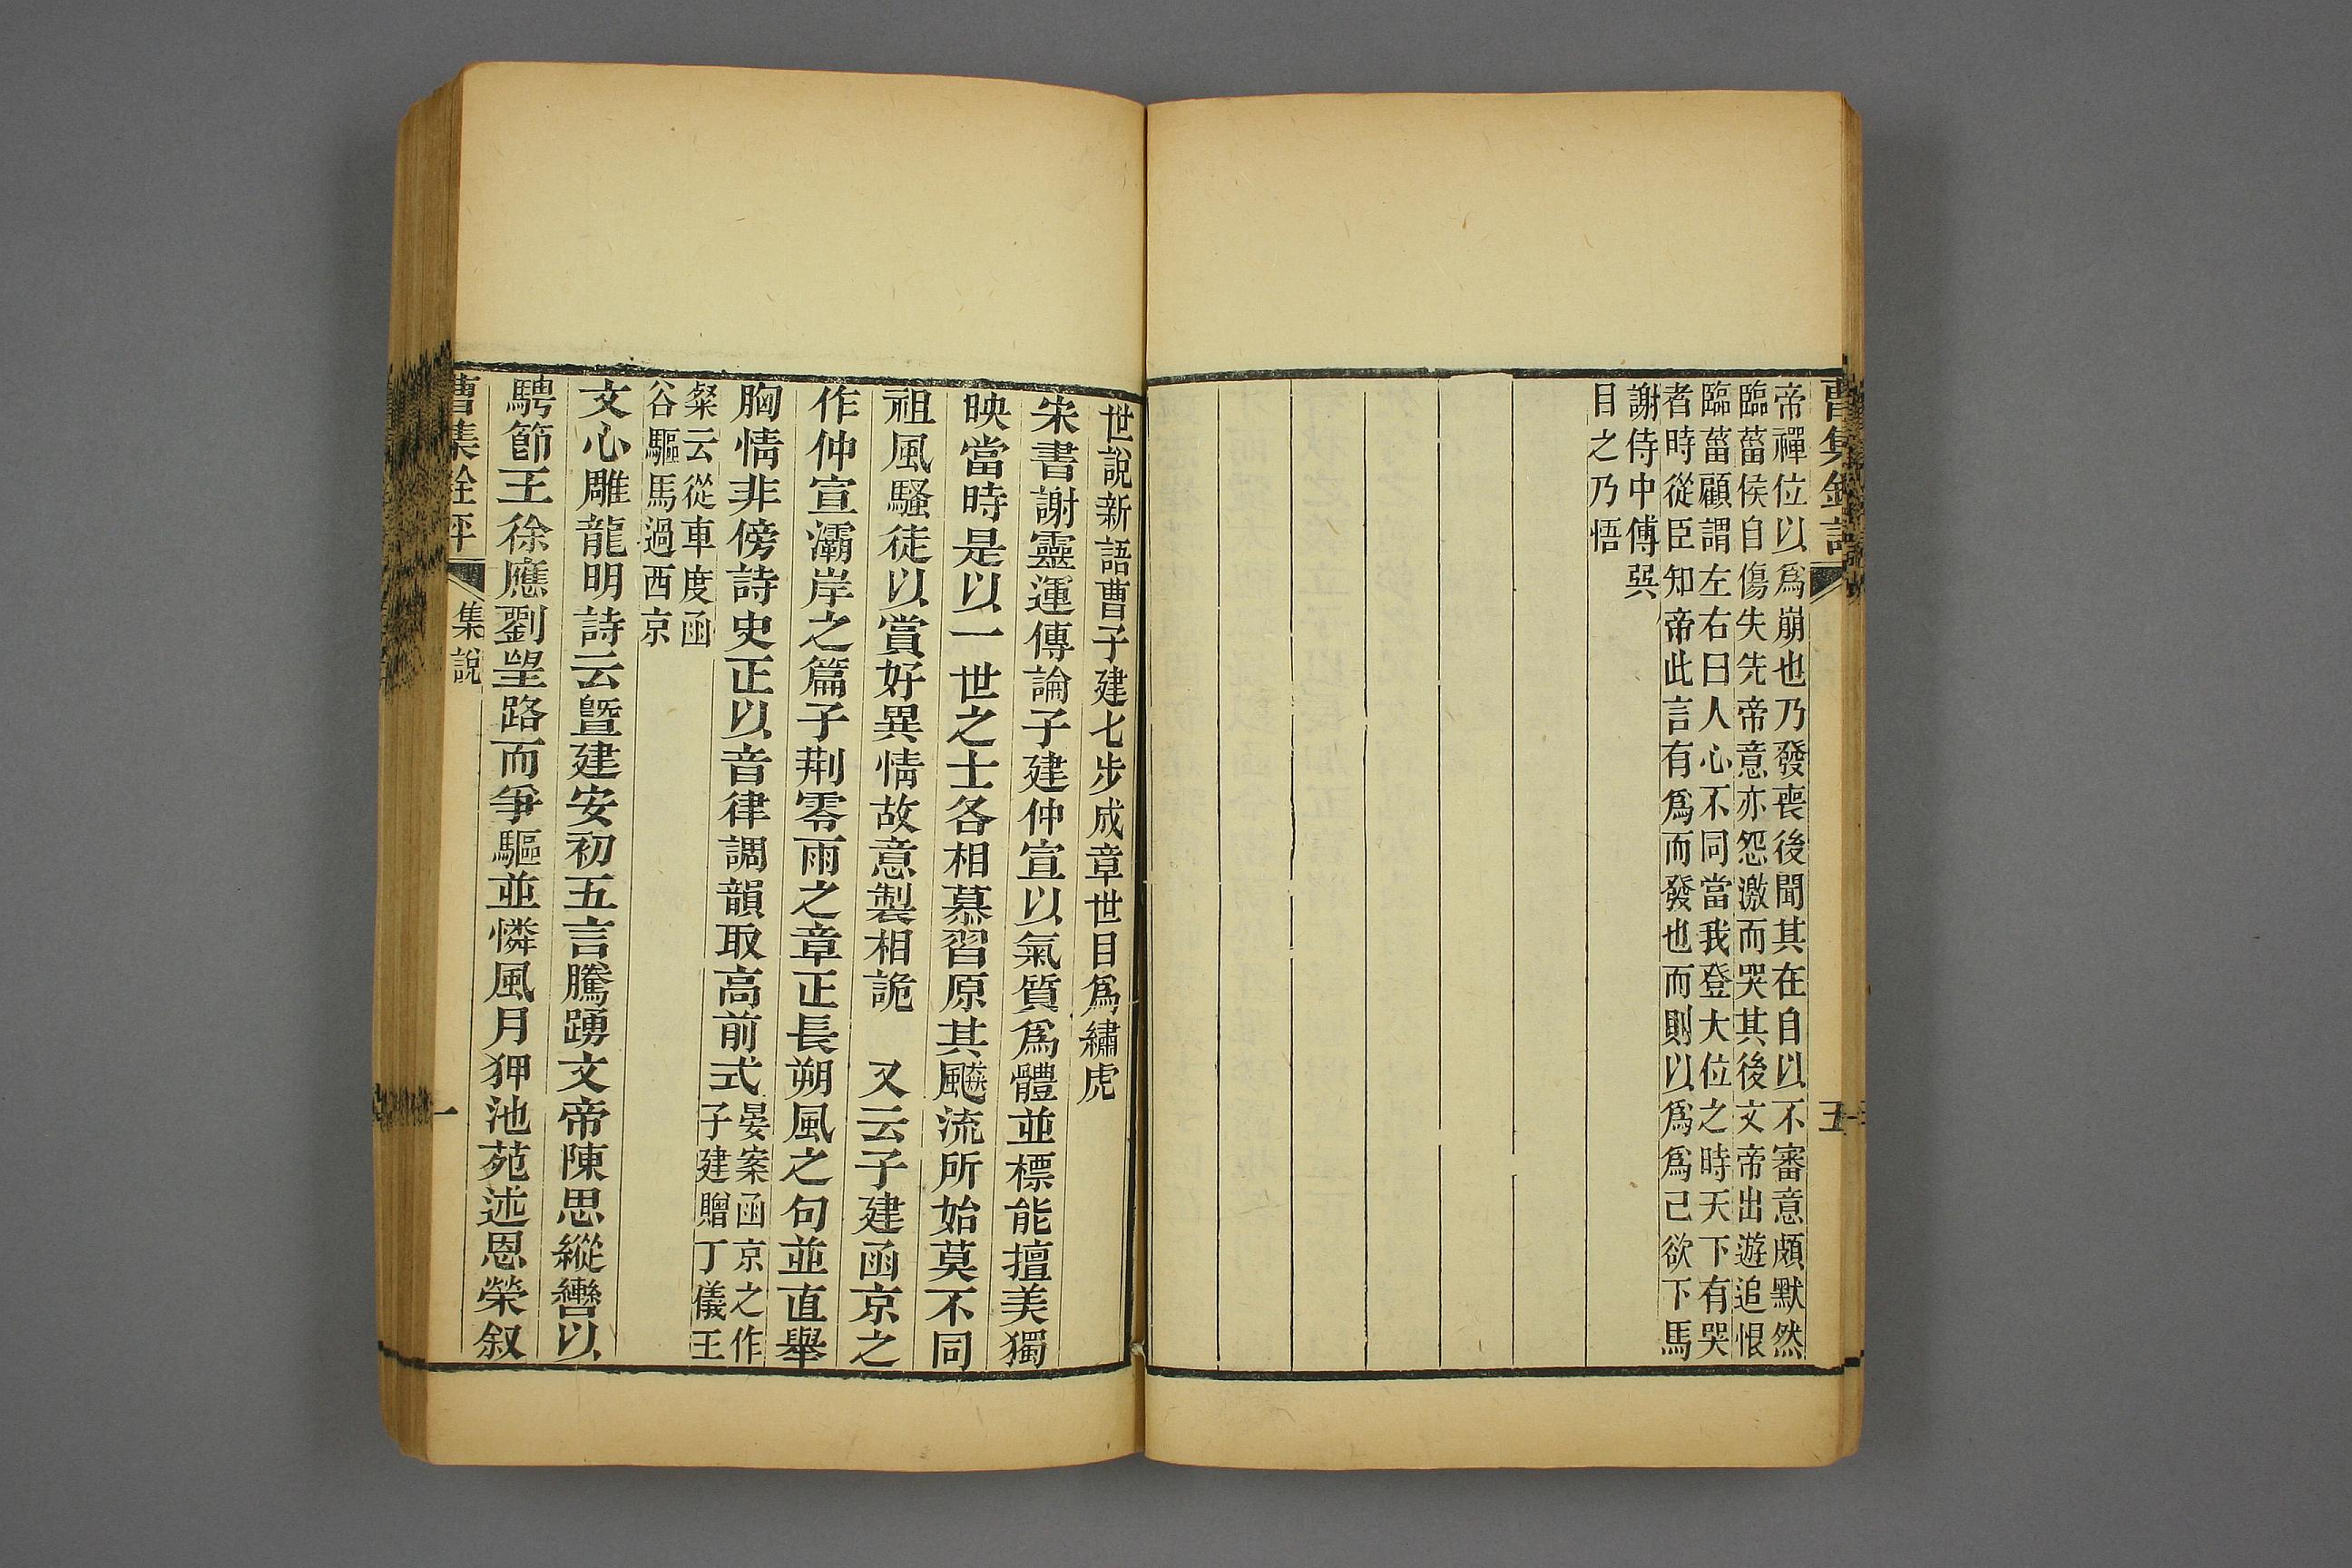 帝禪位以爲崩也乃發喪後聞其在自以不審意頗默然
臨菑侯自傷失先帝意亦怨激而哭其後文帝出遊追恨
臨菑顧謂左右曰人心不同當我登大位之時天下有哭
者時從臣知帝此言有爲而發也而則以爲爲已欲下馬
謝侍中傅巽
目之乃悟
世說新語曹子建七步成章世目爲繡虎
宋書謝靈運傳論子建仲宣以氣質爲體並標能擅美獨
映當時是以一世之士各相慕習原其飈流所始莫不同
祖風騷徒以賞好異情故意製相詭　又云子建函京之
作仲宣灞岸之篇子荆零雨之章正長朔風之句並直舉
胸情非傍詩史正以音律調韻取高前式
晏案函京之作
子建贈丁儀王
粲云從車度函
谷驅馬過西京
文心雕龍明詩云曁建安初五言騰踴文帝陳思縱轡以
騁節王徐應劉望路而爭驅並憐風月狎池苑述恩榮叙
曹集銓評
集說
一